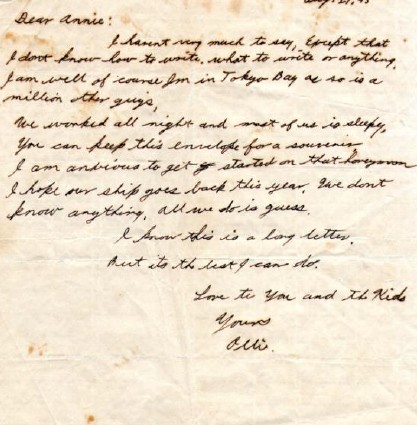 Dear Annie:
I havent very much to say, Except that
I dont know how to write, what to write or anything.
I am well of course Im in Tokyo Bay as so is a
million other guys,
We worked all night and most of us is sleepy,
You can keep this envelope for a souvenir
I am anxious to get started on that honeymoon
I hope our ship goes back this year. We dont
know anything, all we do is guess.
I know this is a long letter.
But its the best I can do.
Love to You and the Kids
Yours
Olli.